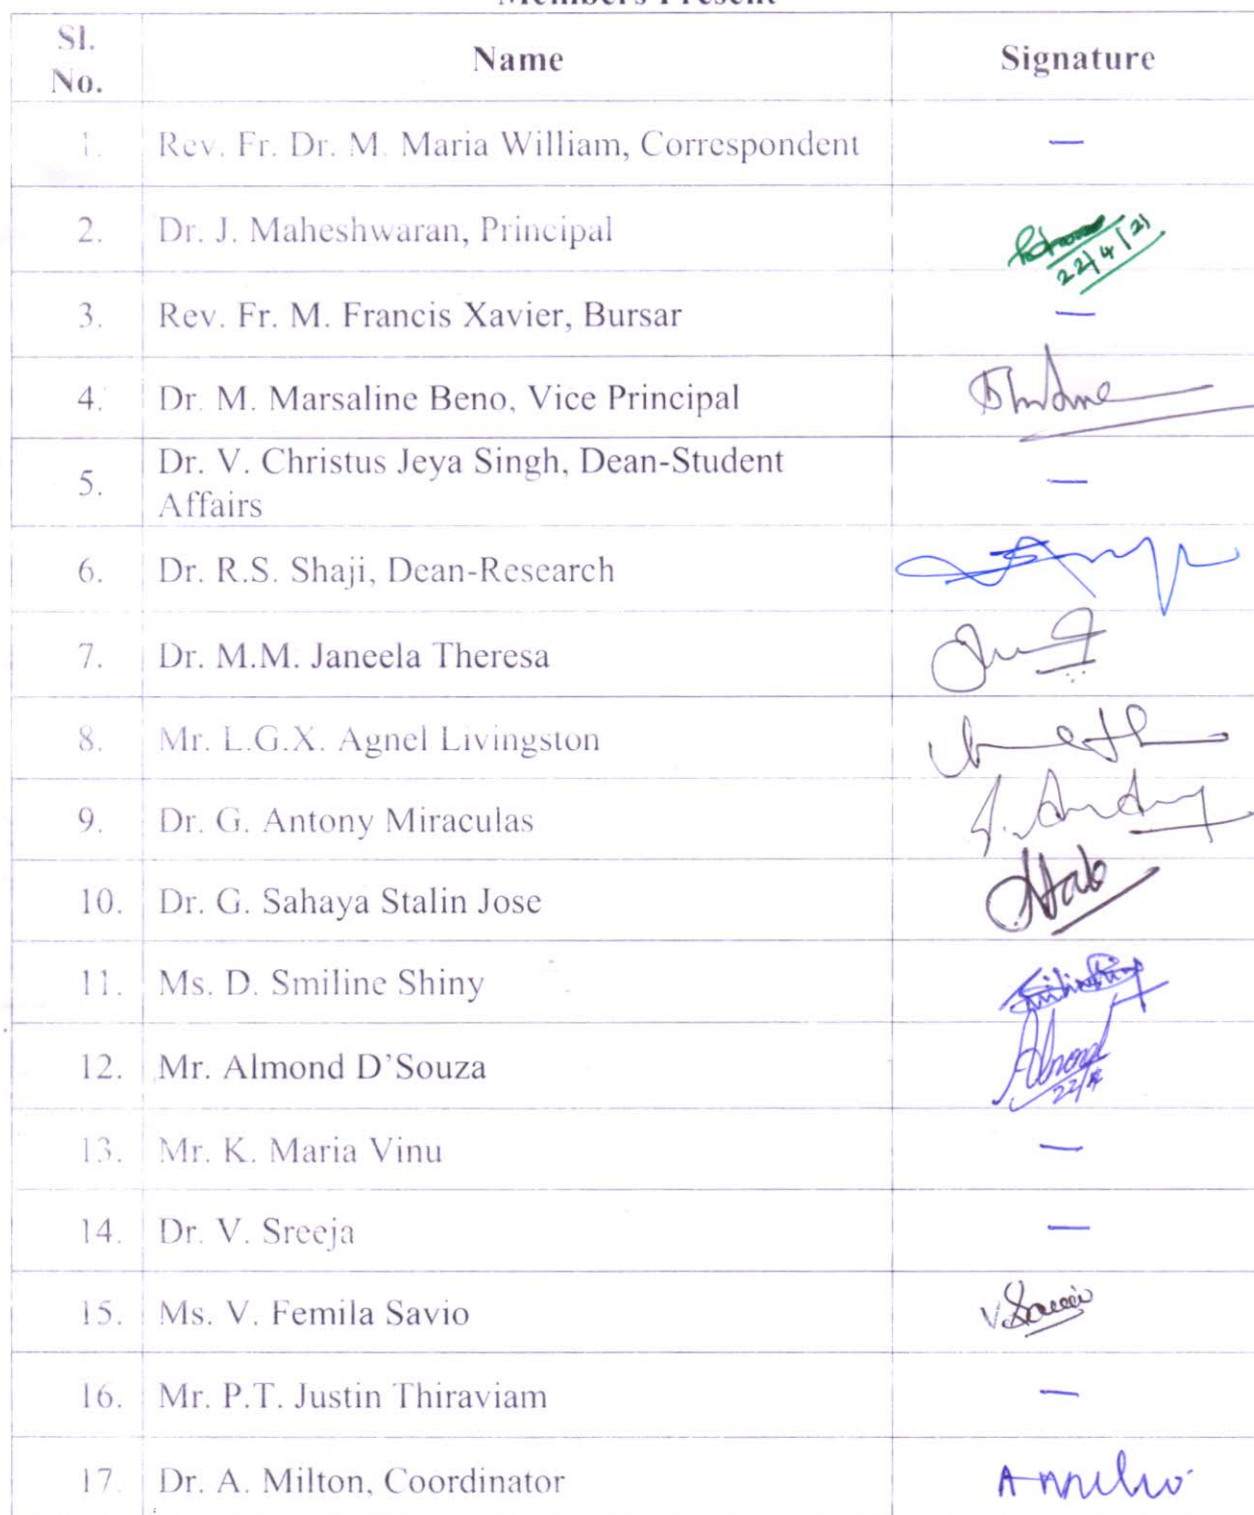 Members Present
Sl. No. Name Signature
1. Rev. Fr. Dr. M. Maria William, Correspondent —
2. Dr. J. Maheshwaran, Principal
22/4/21
3. Rev. Fr. M. Francis Xavier, Bursar —
4. Dr. M. Marsaline Beno, Vice Principal
5. Dr. V. Christus Jeya Singh, Dean-Student
Affairs —
6. Dr. R.S. Shaji, Dean-Research
7. Dr. M.M. Janeela Theresa
8. Mr. L.G.X. Agnel Livingston
9. Dr. G. Antony Miraculas
10. Dr. G. Sahaya Stalin Jose
11. Ms. D. Smiline Shiny
12. Mr. Almond D'Souza
13. Mr. K. Maria Vinu —
14. Dr. V. Sreeja —
15. Ms. V. Femila Savio
16. Mr. P.T. Justin Thiraviam —
17. Dr. A. Milton, Coordinator